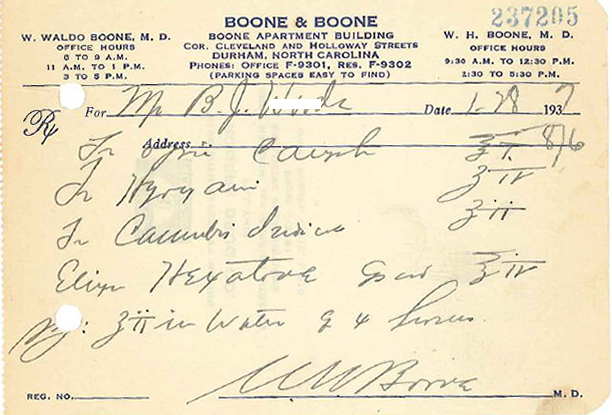 237205
BOONE & BOONE
W. WALDO BOONE, M. D.
OFFICE HOURS
8 TO 9 A.M.
11 A.M. TO 1 P.M.
3 TO 5 P.M.
BOONE APARTMENT BUILDING
COR. CLEVELAND AND HOLLOWAY STREETS
DURHAM, NORTH CAROLINA
PHONES: OFFICE F-9301, RES. F-9302
(PARKING SPACES EASY TO FIND)
W. H. BOONE, M. D.
OFFICE HOURS
9:30 A.M. TO 12:30 P.M.
2:30 TO 5:30 P.M.
For Mr B. J. Date 1-28 1937
Rx Address
Tr
Tr Hyoscyami ʒ iv
Tr Cannabis Indica ʒ ii
Elix ʒ iv
ʒ ii in Water q 4 hours
W W Boone M. D.
REG. NO.